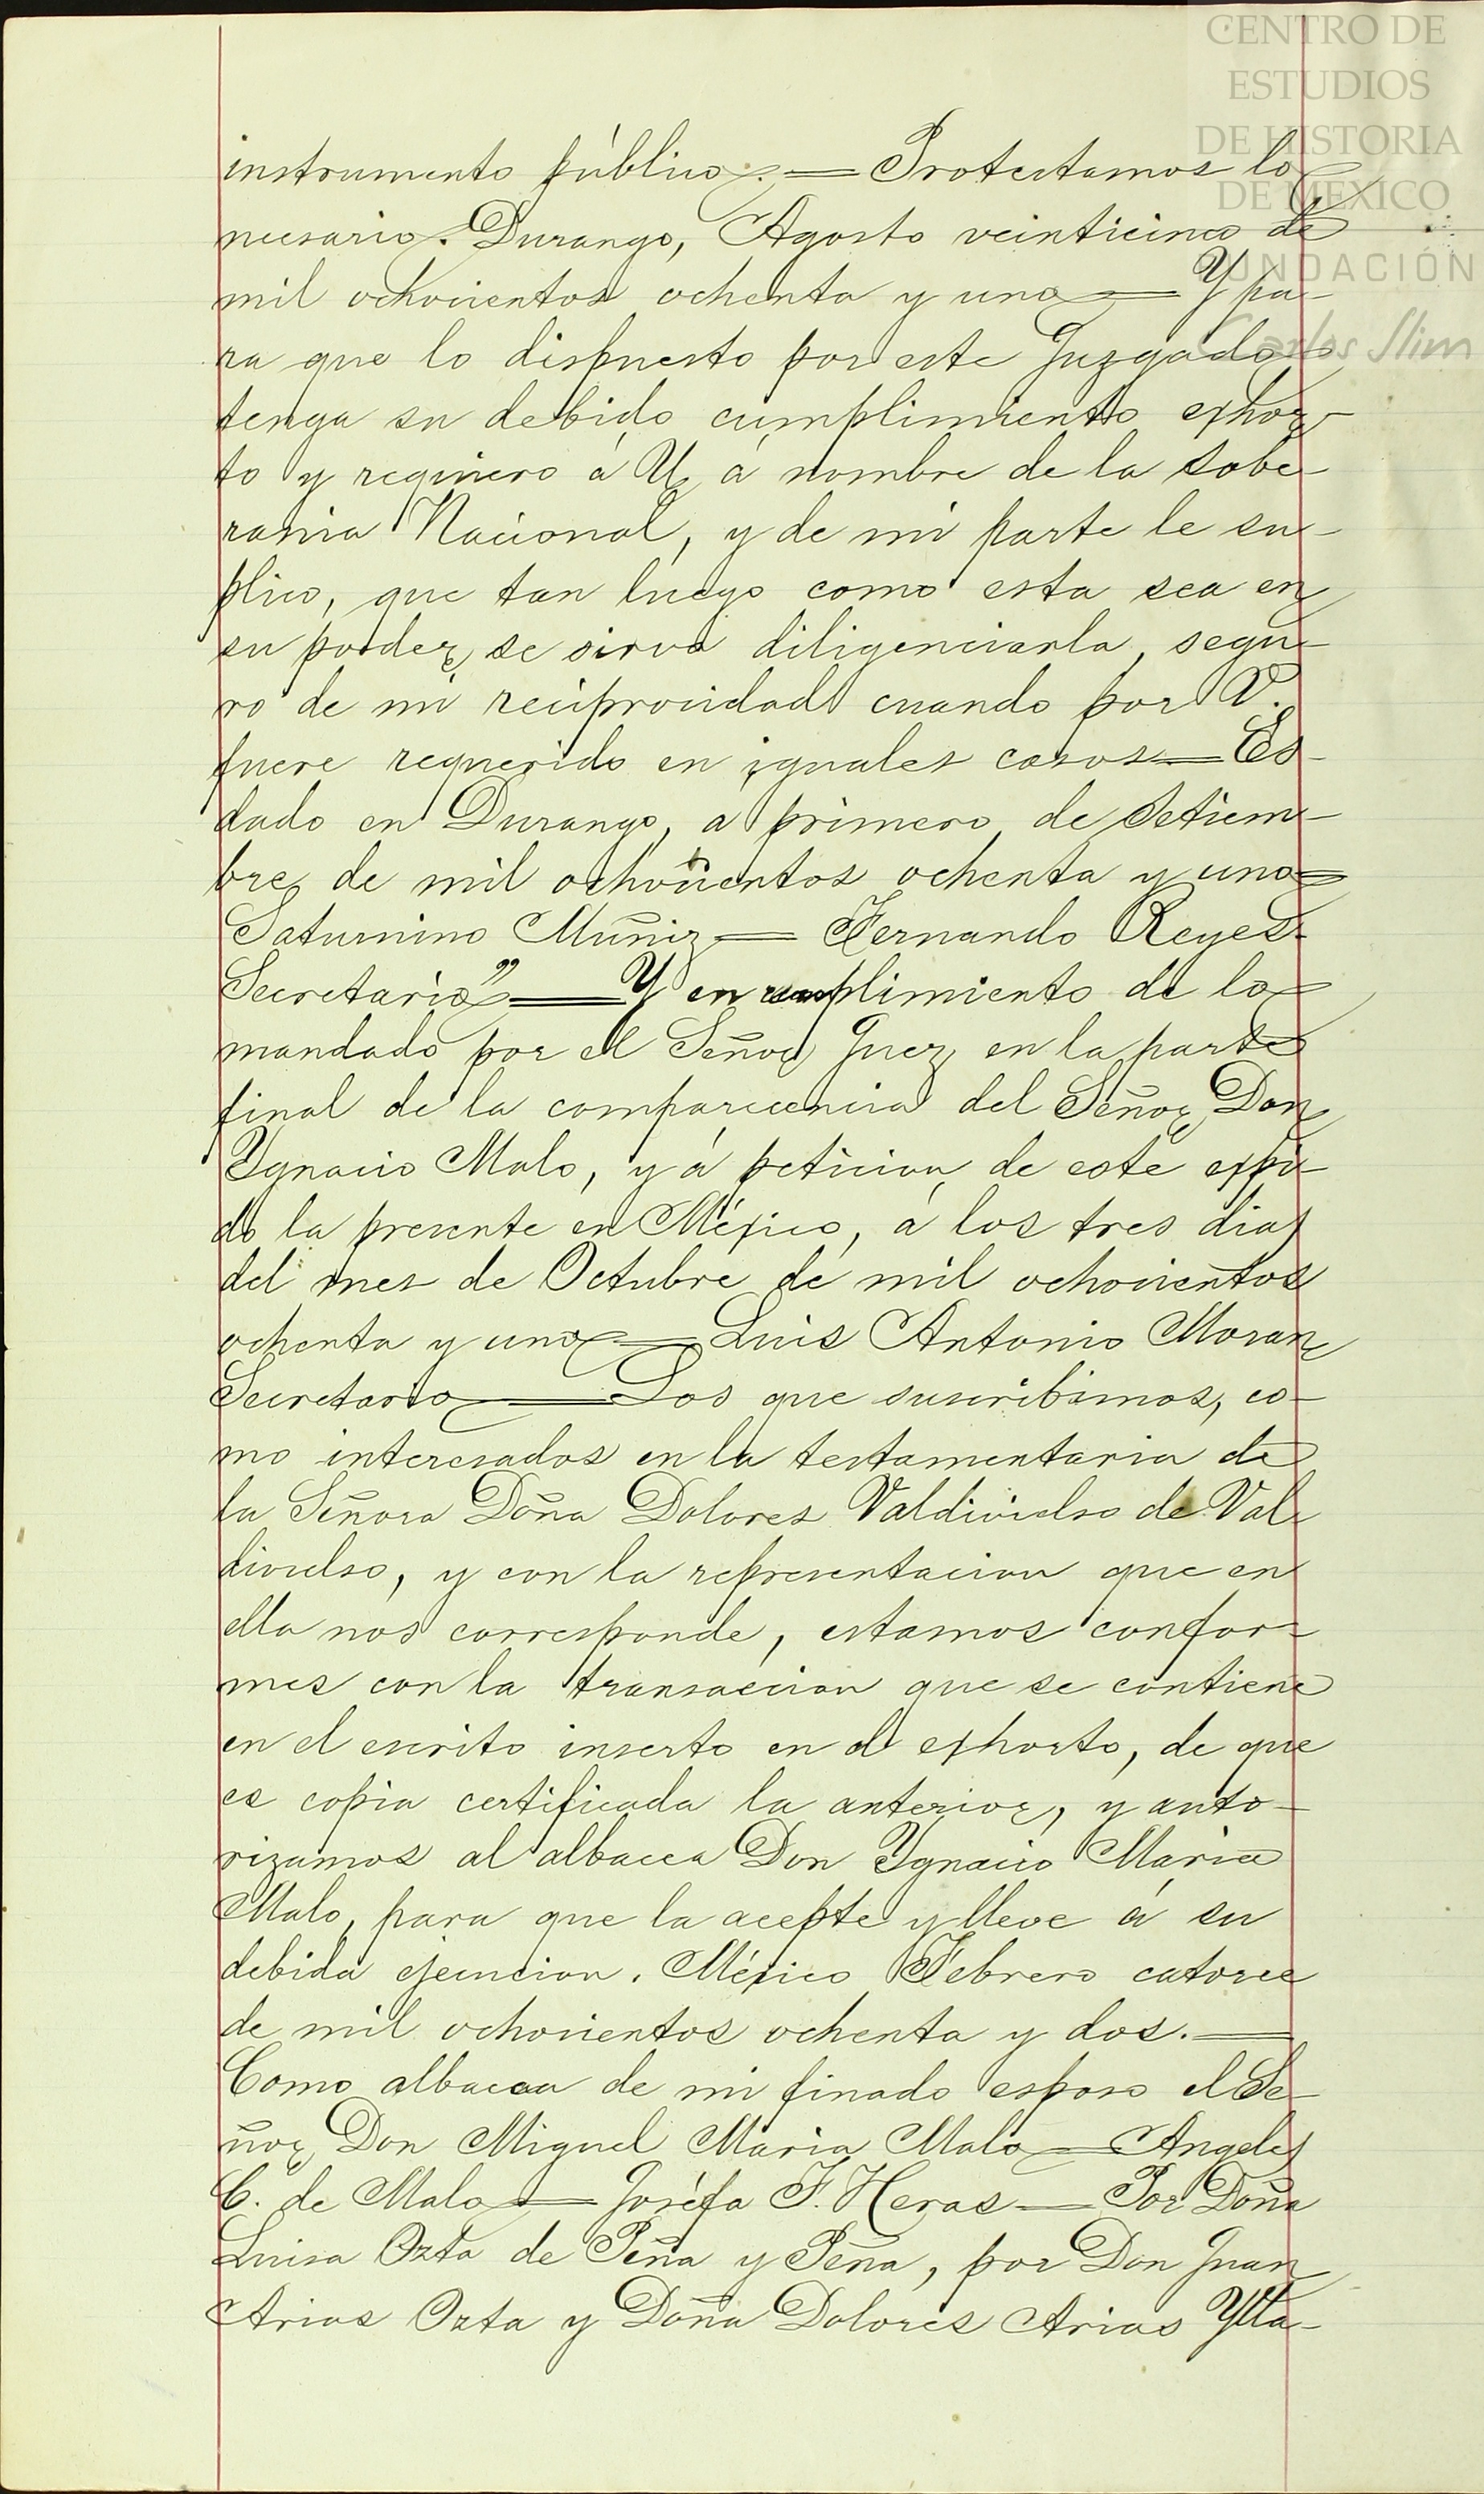 CENTRO DE
ESTUDIOS
DE HISTORIA
DE MEXICO
FUNDACIÓN
Carlos Slim
instrumento público. = Protestamos lo
necesario. Durango, Agosto veinticinco de
mil ochocientos ochenta y uno = Y pa-
ra que lo dispuesto por este Juzgado
tenga su debido cumplimiento exhor-
to y requiero á U. á nombre de la sobe-
rania Nacional, y de mi parte le su-
plico, que tan luego como esta sea en
su poder, se sirva diligenciarla, segu-
ro de mi reciprocidad cuando por V.
fuere requerido en iguales casos = Es-
dado en Durango, á primero de Setiem-
bre de mil ochocientos ochenta y uno =
Saturnino Muñiz = Fernando Reyes-
Secretario" = Y en cumplimiento de lo
mandado por el Señor Juez, en la parte
final de la comparecencia del Señor Don
Ygnacio Malo, y á peticion de este expi-
do la presente en México, á los tres dias
del mes de Octubre de mil ochocientos
ochenta y uno = Luis Antonio Moran
Secretario = Los que suscribimos, co-
mo interesados en la testamentaria de
la Señora Doña Dolores Valdivielso de Val-
divielso, y con la representacion que en
ella nos corresponde, estamos confor-
mes con la transaccion que se contiene
en el escrito inserto en el exhorto, de que
es copia certificada la anterior, y auto-
rizamos al albacea Don Ygnacio Maria
Malo, para que la acepte y lleve á su
debida ejecucion. México Febrero catorce
de mil ochocientos ochenta y dos. =
Como albacea de mi finado esposo el Se-
ñor Don Miguel Maria Malo = Angeles
C. de Malo = Joséfa F. Heras = Por Doña
Luisa Ozta de Peña y Peña, por Don Juan
Arias Ozta y Doña Dolores Arias Ytta-